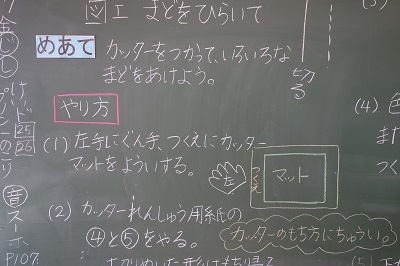 図工 まどをひらいて
めあて カッターをつかって、いろいろな
まどをあけよう。
切る
やり方
(1) 左手にぐん手、つくえにカッター
マットをよういする。
左
つくえ
マット
(2) カッターれんしゅう用紙の
④と⑤をやる。
カッターのもち方にちゅうい。
(4) 色
また
つく
音
スーホ
P107